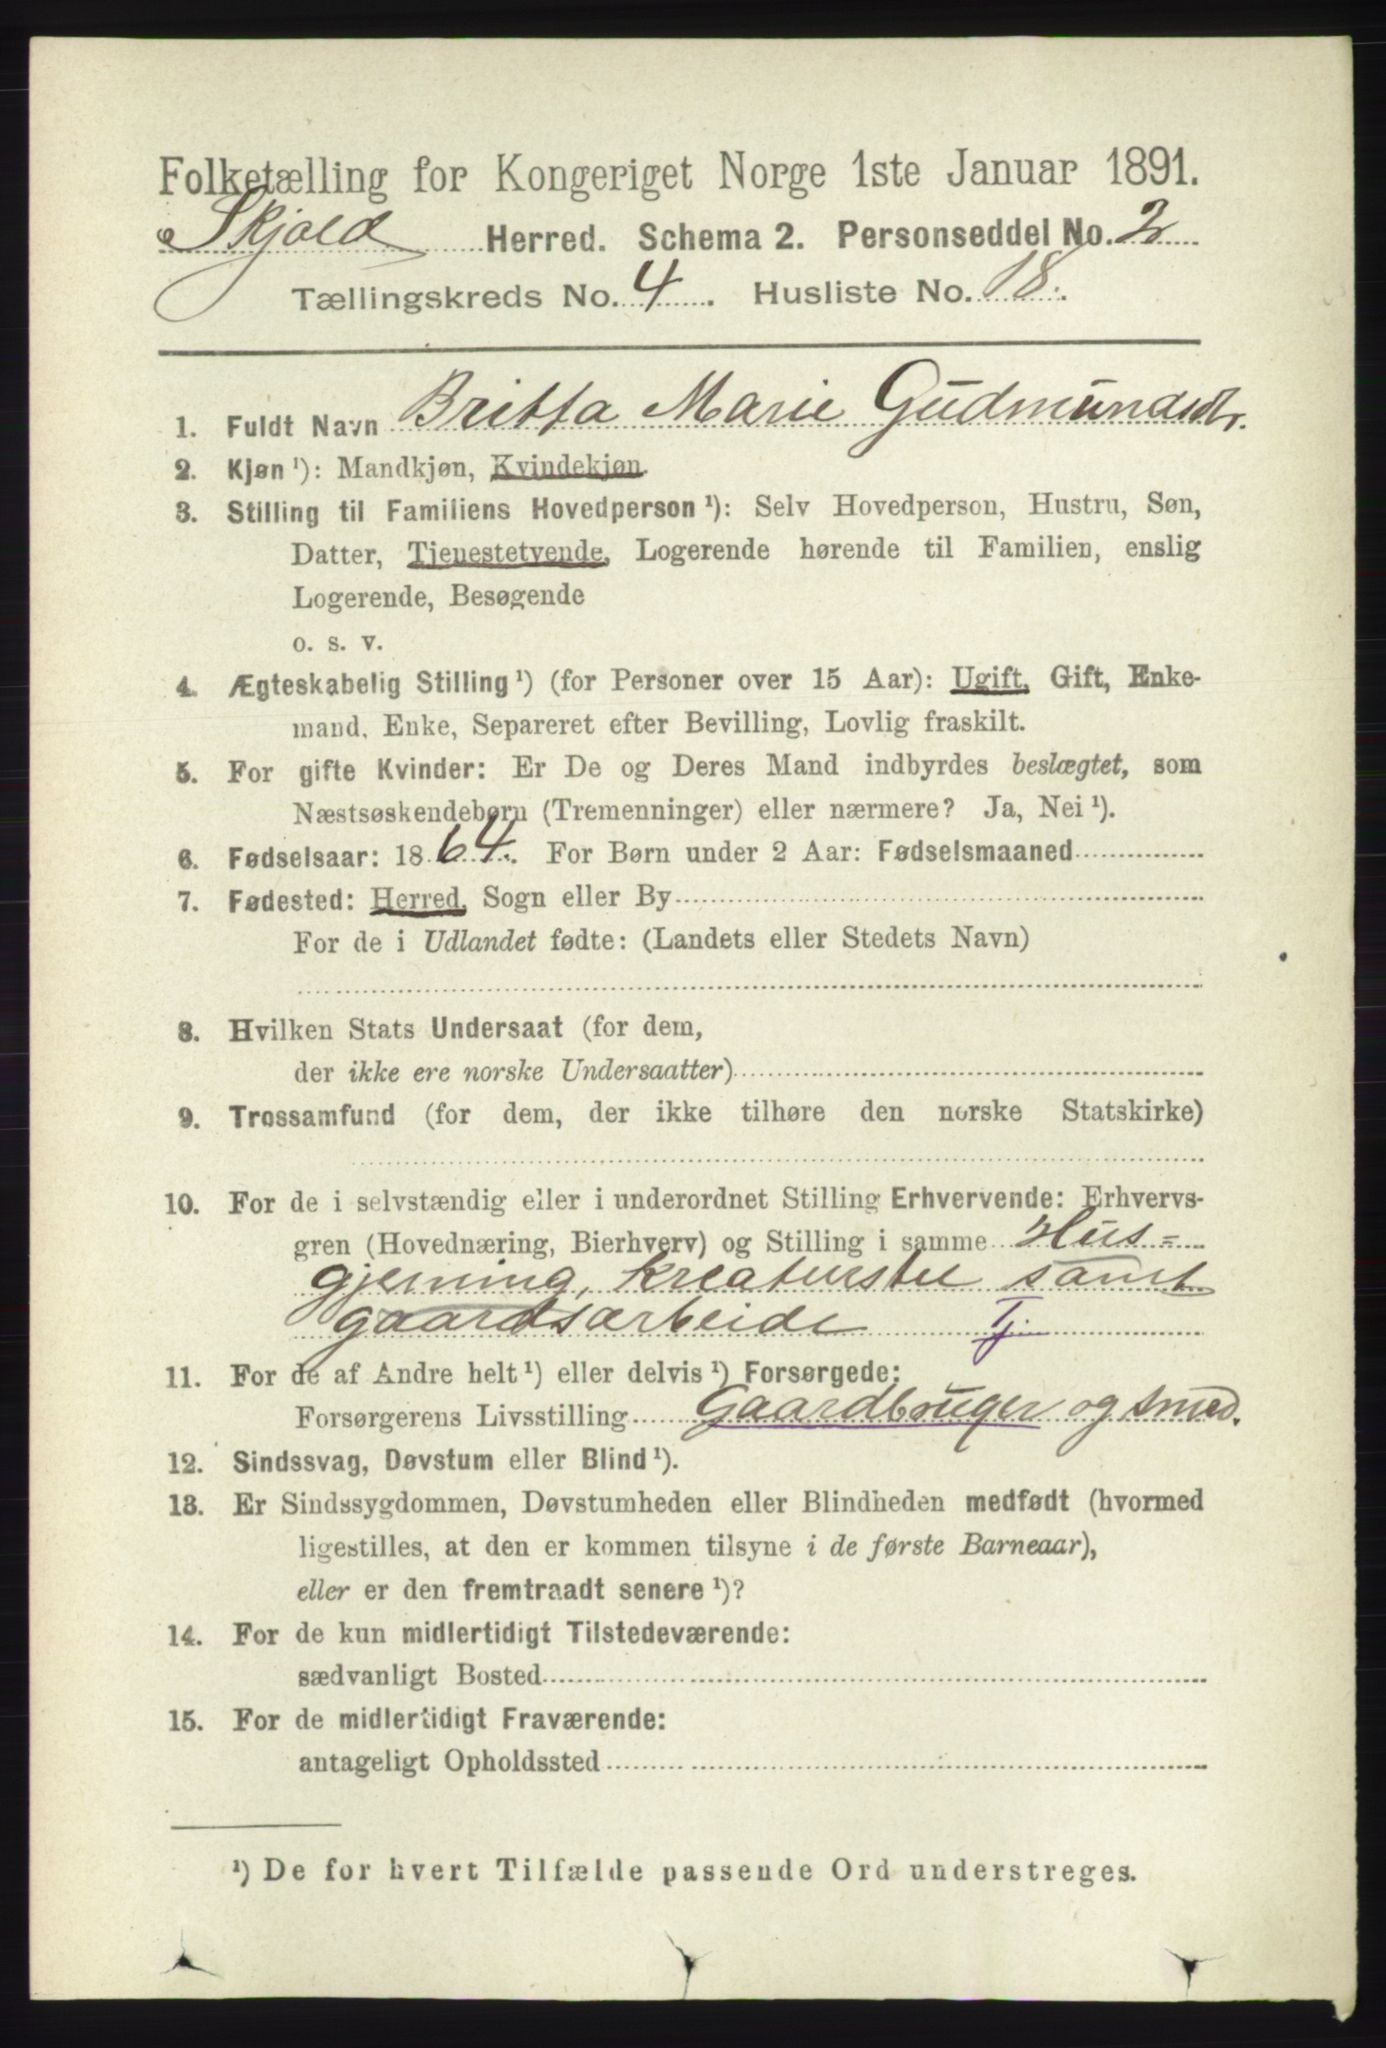 Folketælling for Kongeriget Norge 1ste Januar 1891.
Skjold Herred. Schema 2. Personseddel No. 2
Tællingskreds No. 4. Husliste No. 18.
1. Fuldt Navn Britta Marie Gudmundsdtr.
2. Kjøn ¹): Mandkjøn, Kvindekjøn
3. Stilling til Familiens Hovedperson ¹): Selv Hovedperson, Hustru, Søn,
Datter, Tjenestetyende, Logerende hørende til Familien, enslig
Logerende, Besøgende
o. s. v.
4. Ægteskabelig Stilling ¹) (for Personer over 15 Aar): Ugift, Gift, Enke-
mand, Enke, Separeret efter Bevilling, Lovlig fraskilt.
5. For gifte Kvinder: Er De og Deres Mand indbyrdes beslægtet, som
Næstsøskendebørn (Tremenninger) eller nærmere? Ja, Nei ¹).
6. Fødselsaar: 1864. For Børn under 2 Aar: Fødselsmaaned
7. Fødested: Herred, Sogn eller By
For de i Udlandet fødte: (Landets eller Stedets Navn)
8. Hvilken Stats Undersaat (for dem,
der ikke ere norske Undersaatter)
9. Trossamfund (for dem, der ikke tilhøre den norske Statskirke)
10. For de i selvstændig eller i underordnet Stilling Erhvervende: Erhvervs-
gren (Hovednæring, Bierhverv) og Stilling i samme Hus-
gjerning, kreaturstel samt
gaardsarbeide Tj.
11. For de af Andre helt ¹) eller delvis ¹) Forsørgede:
Forsørgerens Livsstilling Gaardbruger og smed.
12. Sindssvag, Døvstum eller Blind ¹).
13. Er Sindssygdommen, Døvstumheden eller Blindheden medfødt (hvormed
ligestilles, at den er kommen tilsyne i de første Barneaar),
eller er den fremtraadt senere ¹)?
14. For de kun midlertidigt Tilstedeværende:
sædvanligt Bosted
15. For de midlertidigt Fraværende:
antageligt Opholdssted
¹) De for hvert Tilfælde passende Ord understreges.